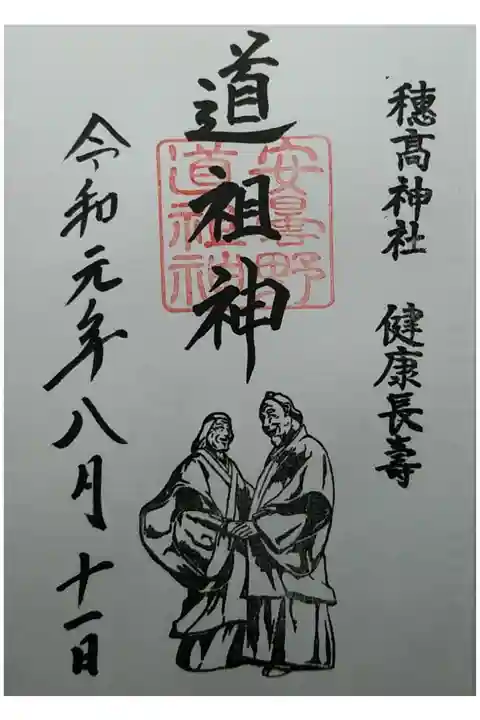 穂髙神社 健康長壽
道祖神
安曇野
道祖神
令和元年八月十一日